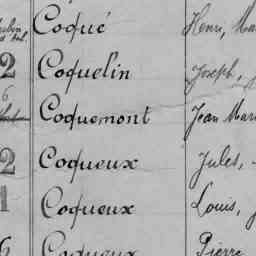 Coqué Henri, Ma
2 Coquelin Joseph, J
6 Coquemont Jean Mari
2 Coqueux Jules,
1 Coqueux Louis, J
6 Coqueux Pierre